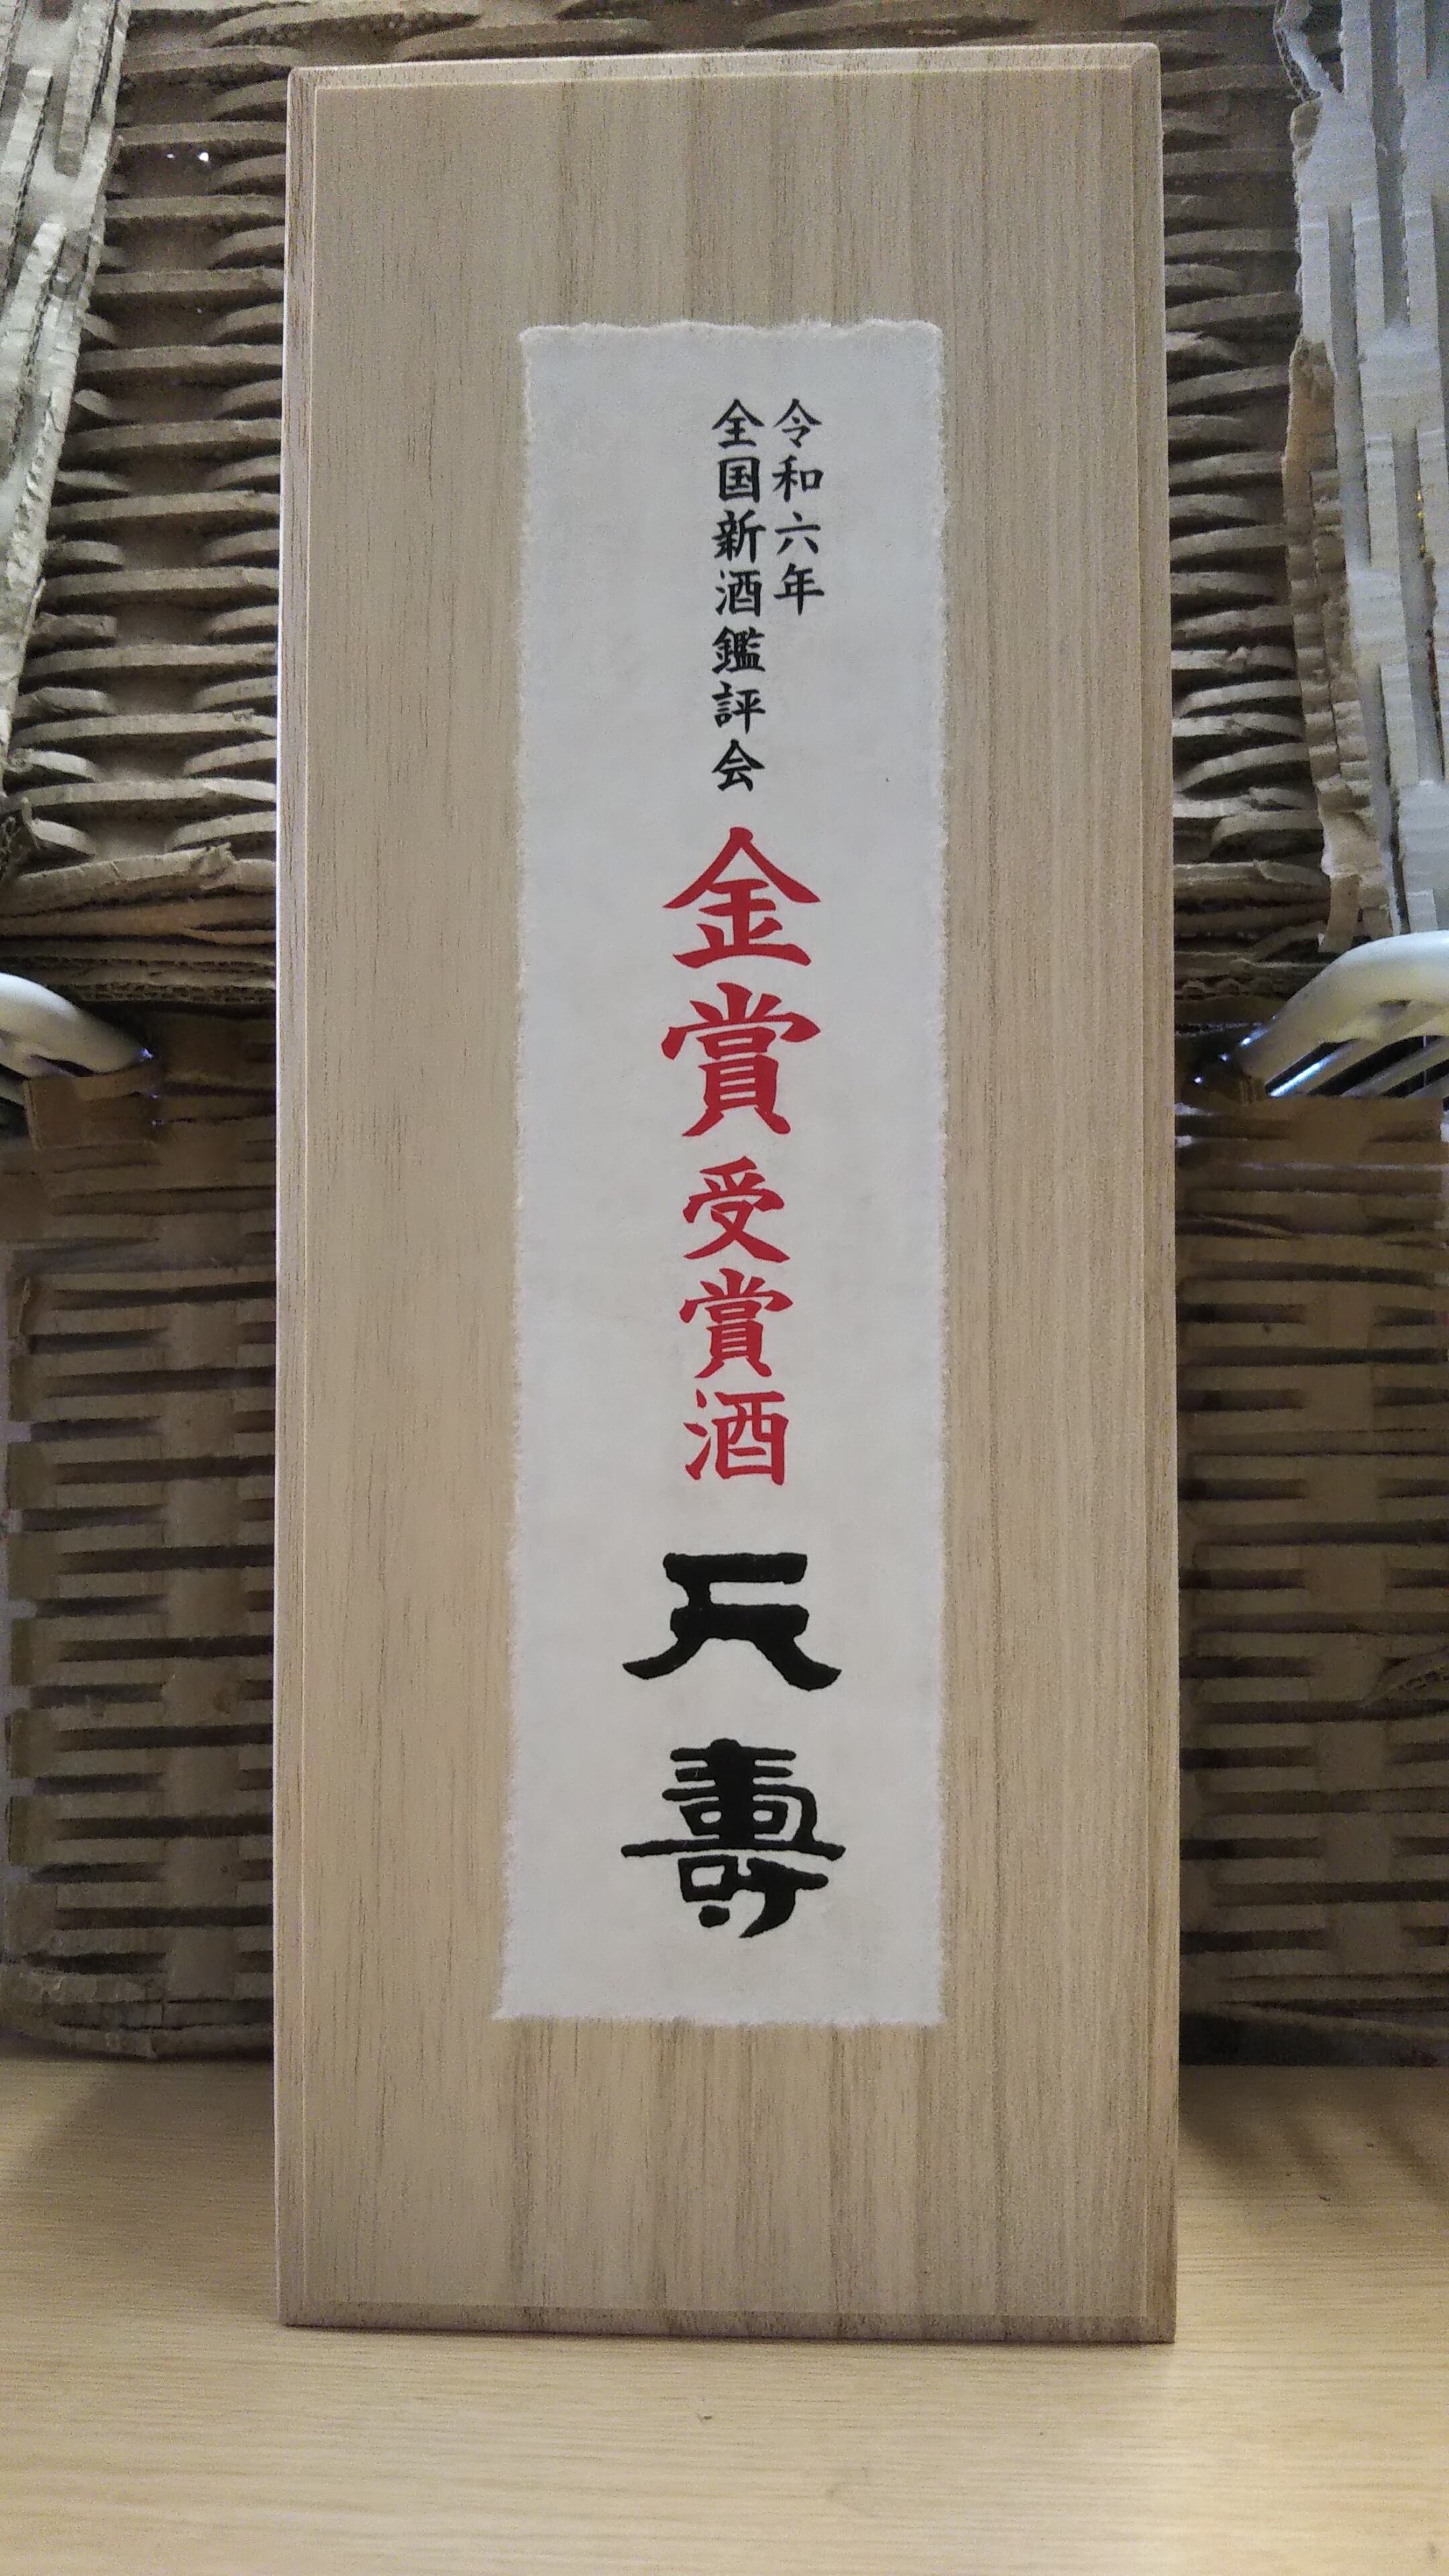 令和六年
全国新酒鑑評会
金賞受賞酒
天壽